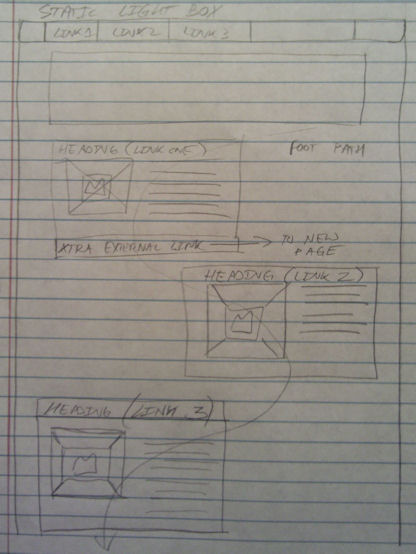 STATIC LIGHT BOX
LINK 1 LINK 2 LINK 3
HEADING (LINK ONE)
FOOT PATH
XTRA EXTERNAL LINK
TO NEW
PAGE
HEADING (LINK 2)
HEADING (LINK 3)